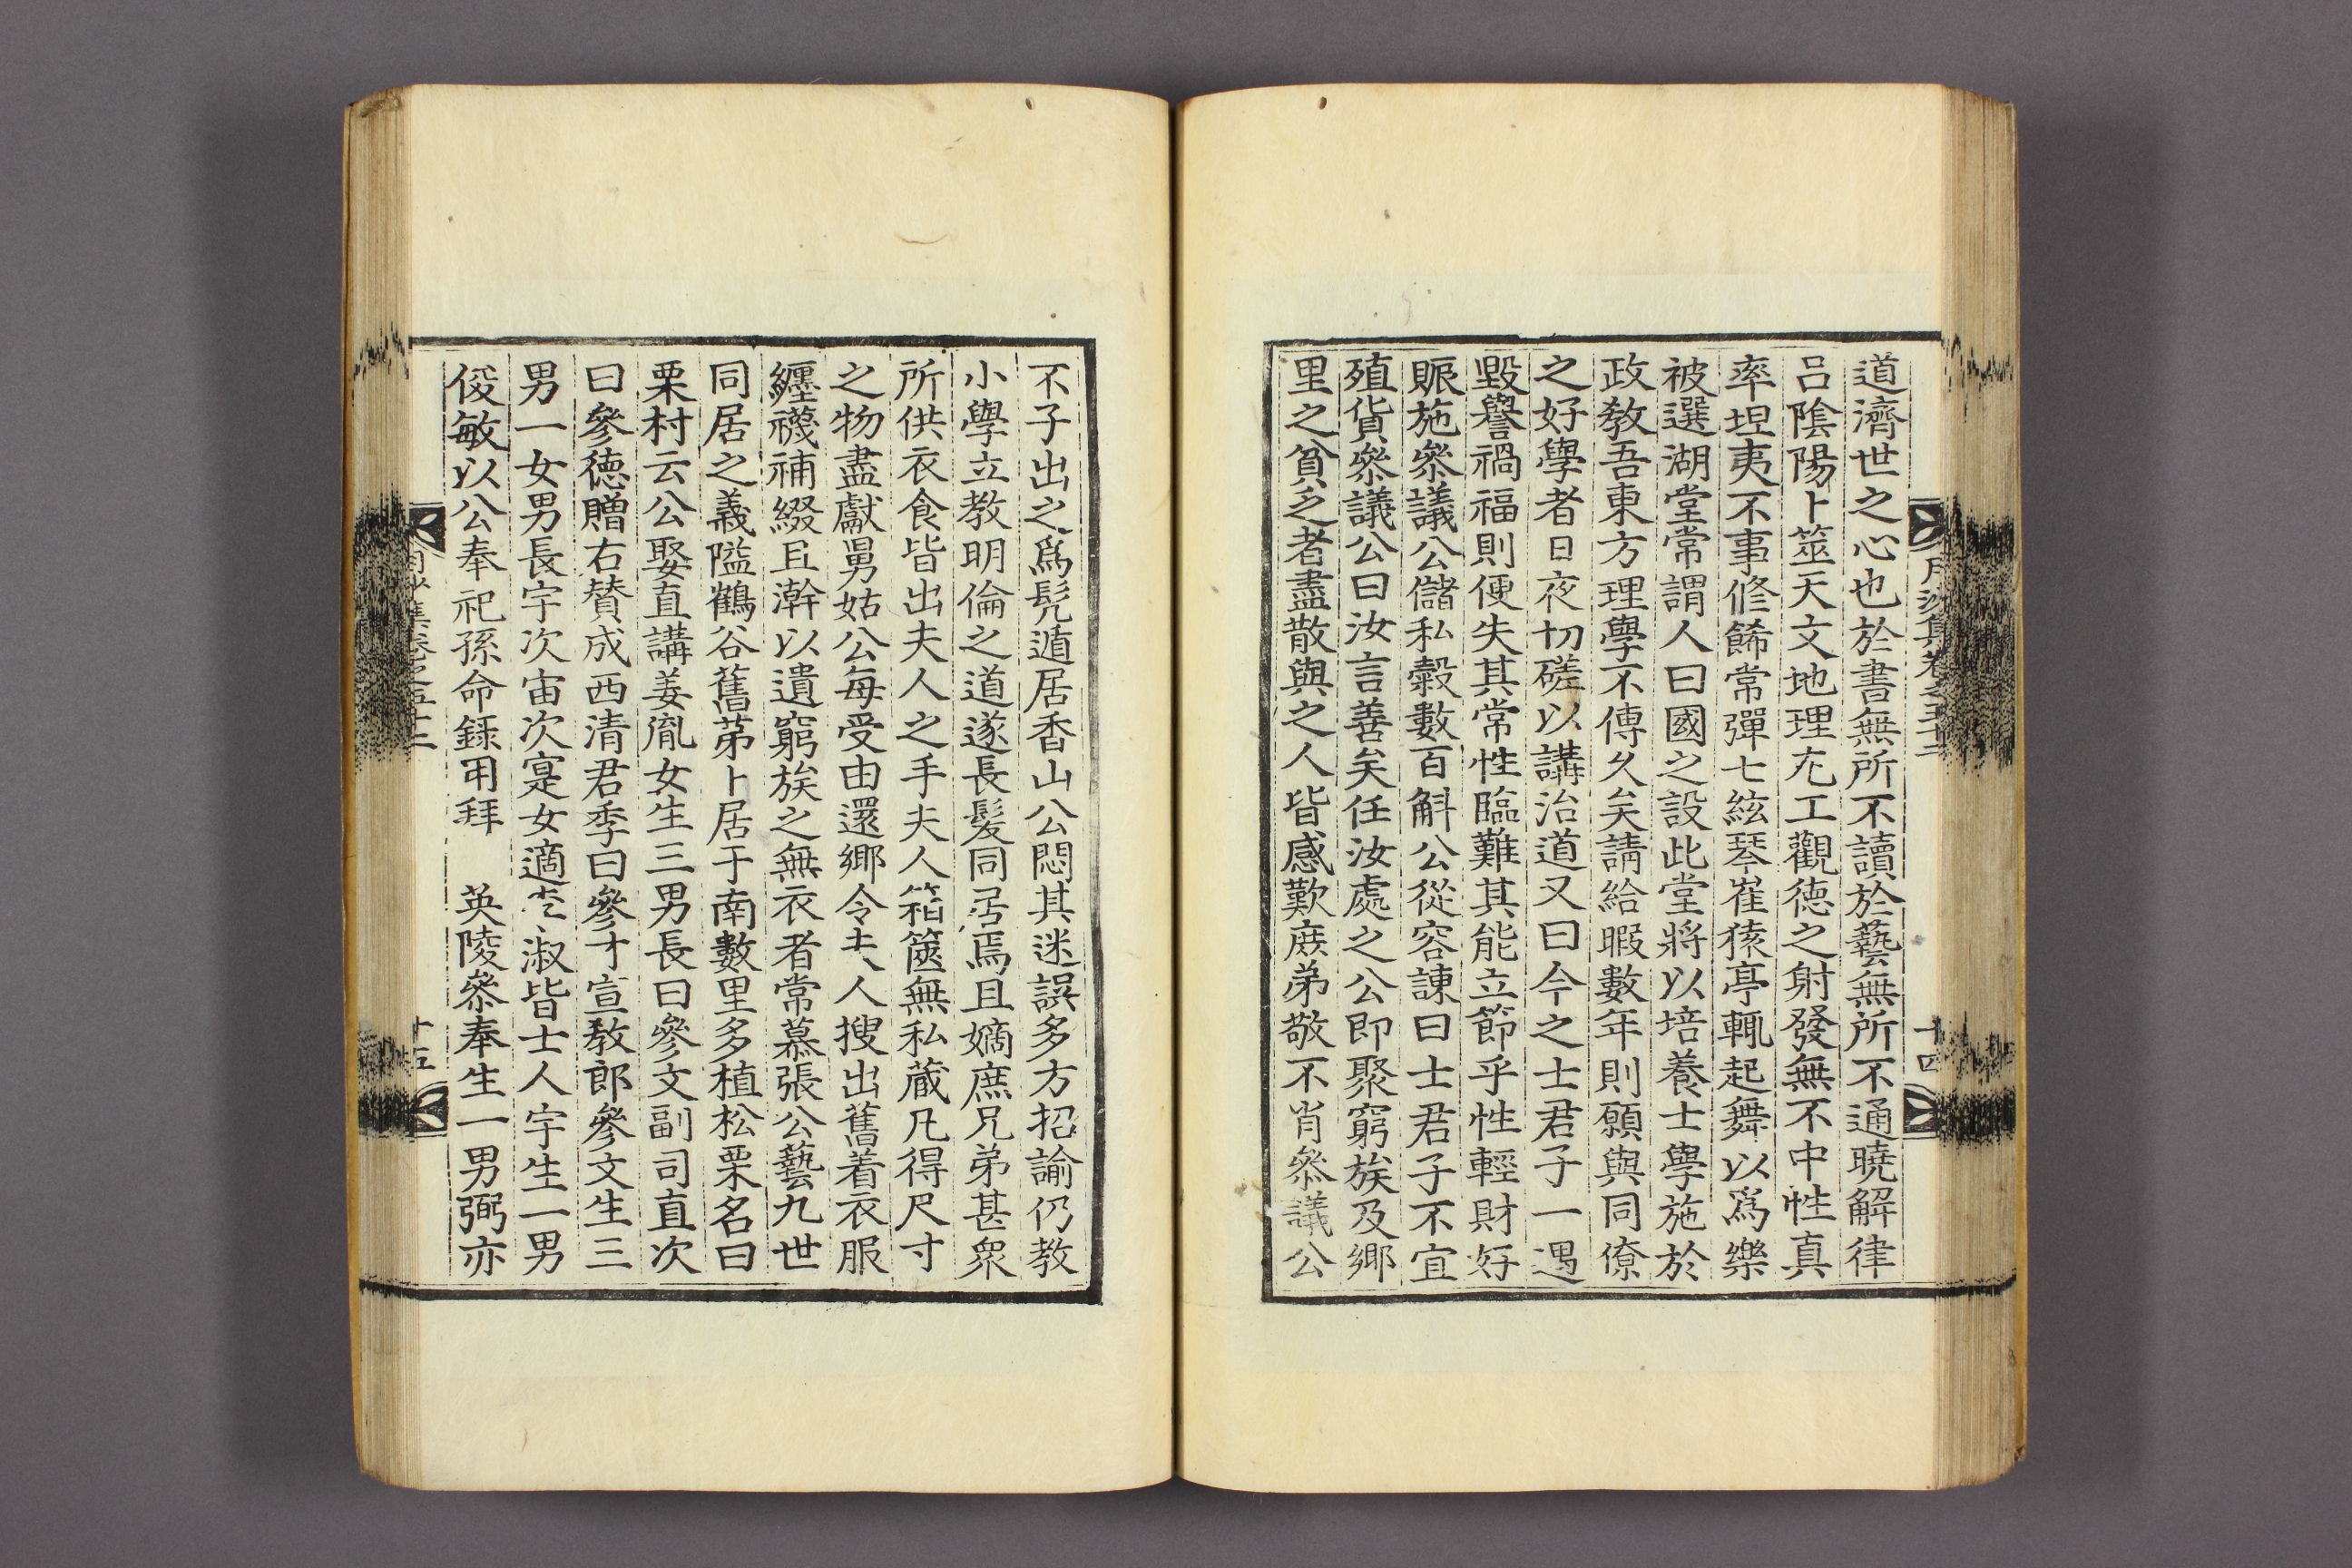 道濟世之心也於書無所不讀於藝無所不通曉解律
呂陰陽卜筮天文地理尤工觀德之射發無不中性真
率坦夷不事修餙常彈七絃琴崔猿亭輒起舞以爲樂
被選湖堂常謂人曰國之設此堂將以培養士學施於
政敎吾東方理學不傳久矣請給暇數年則願與同僚
之好學者日夜切磋以講治道又曰今之士君子一遇
毀譽禍福則便失其常性臨難其能立節乎性輕財好
賑施叅議公儲私糓數百斛公從容諫曰士君子不宜
殖貨叅議公曰汝言善矣任汝處之公即聚窮族及鄉
里之貧乏者盡散與之人皆感歎庶弟敬不肖叅議公
月沙集卷之五十二
十四
不子出之爲髠遁居香山公悶其迷誤多方招諭仍教
小學立教明倫之道遂長髮同居焉且嫡庶兄弟甚衆
所供衣食皆出夫人之手夫人箱篋無私藏凡得尺寸
之物盡獻舅姑公每受由還鄉令夫人搜出舊着衣服
纏襪補綴且澣以遺窮族之無衣者常慕張公藝九世
同居之義隘鶴谷舊苐卜居于南數里多植松栗名曰
栗村云公娶直講姜胤女生三男長曰參文副司直次
曰參德贈右賛成西清君季曰參才宣教郎參文生三
男一女男長宇次宙次寔女適李淑皆士人宇生一男
俊敏以公奉祀孫命錄用拜　英陵叅奉生一男弼亦
月沙集卷之五十二
十五